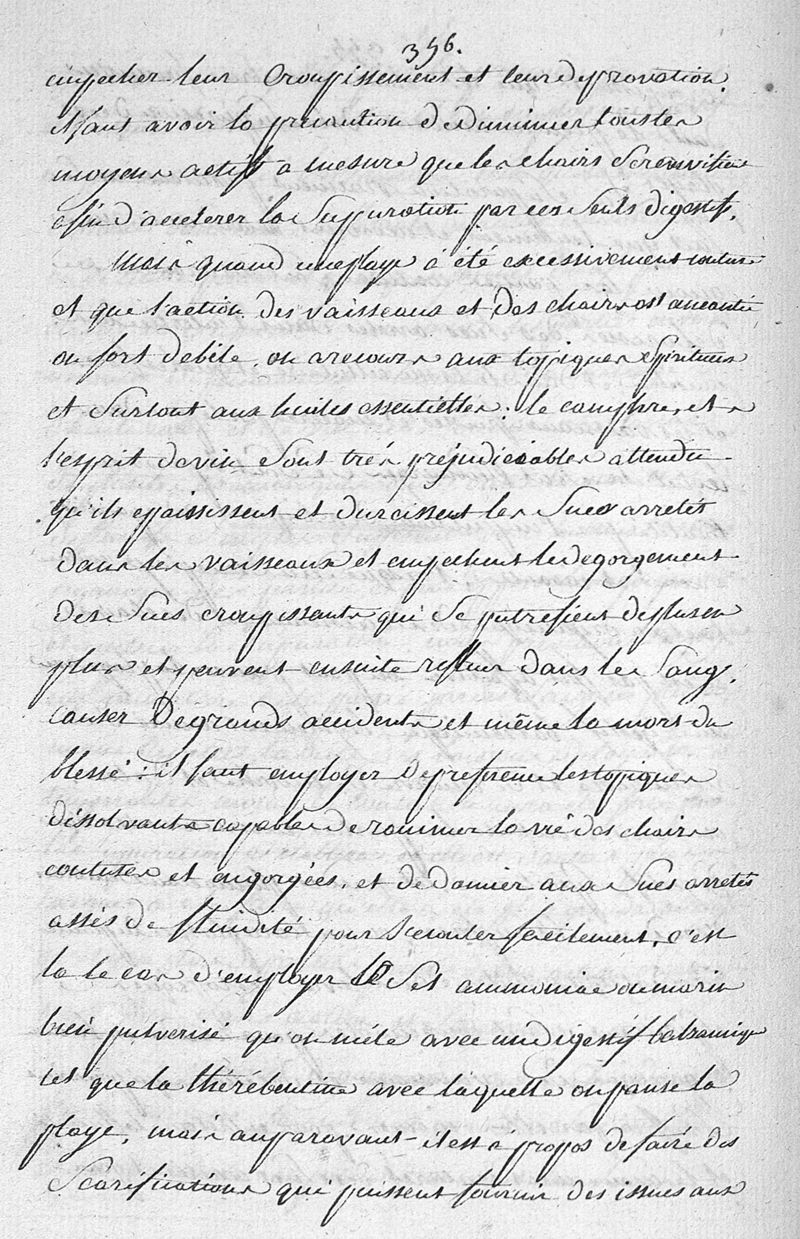 356.
empecher leur Croupissement et leur depravation.
il faut avoir la précaution de diminuer tous les
moyens actifs a mesure que les chairs se revivifient
afin d'accelerer la Suppuration par ces seuls digestifs.
Mais quand une playe a été excessivement contuse
et que l'action des vaisseaux et des chairs est aneantie
ou fort debile, on a recours aux topiques Spiritueux
et Surtout aux huiles essentielles. le camphre, et
l'esprit de vin sont très préjudiciables attendu
qu'ils epaississent et durcissent les Sucs arretés
dans les vaisseaux et empechent le degorgement
des Sucs croupissants qui se putrefient de plus en
plus et peuvent ensuite refluer dans le Sang,
causer De grands accidents et même la mort du
blessé : il faut employer De preference les topiques
dissolvants capables de ranimer la vie des chairs
contuses et engorgées, et de donner aux Sucs arretés
assés de fluidité pour s'ecouler facilement, c'est
la le cas d'employer le Sel ammoniac ou marin
bien pulverisé qu'on mêle avec un digestif balsamique
tel que la thérébentine avec laquelle on panse la
playe, mais auparavant il est a propos de faire des
Scarifications qui puissent fournir des issues aux